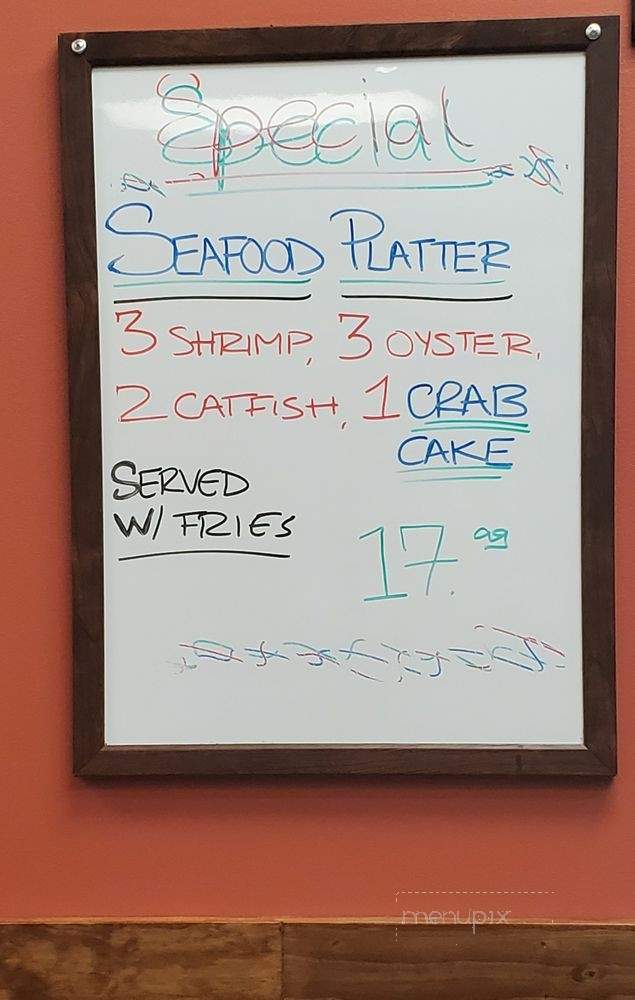 Special
SEAFOOD PLATTER
3 SHRIMP, 3 OYSTER,
2 CATFISH, 1 CRAB
CAKE
SERVED
W/ FRIES
17.99
menupix